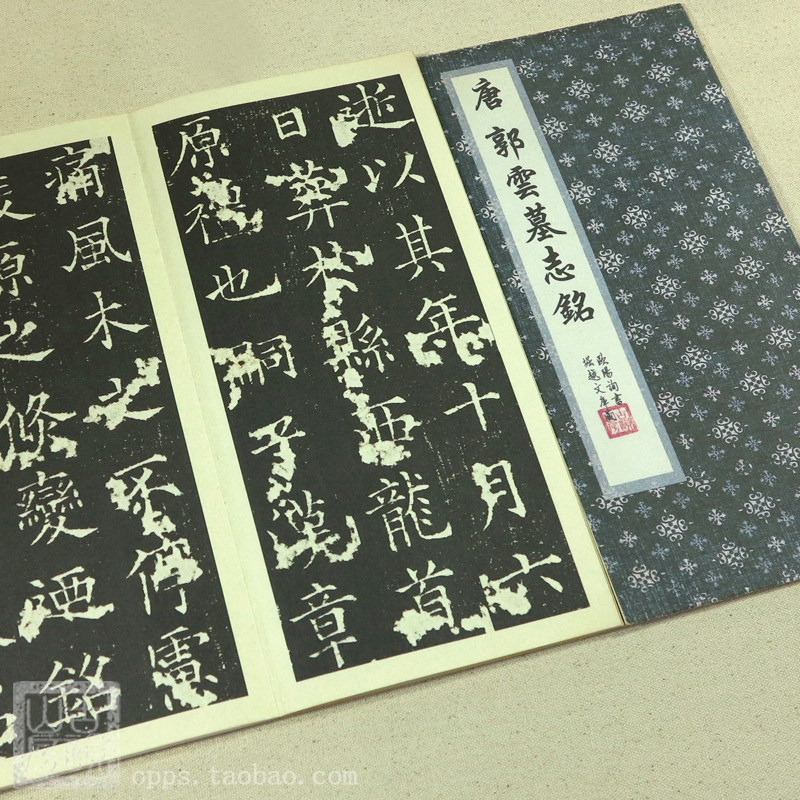 唐 郭雲墓志銘
歐陽詢書
堀越文庫
逝以其年十月六
日葬於縣西龍首
原禮也嗣子漢章
痛風木之不停慮
原之條變迺銘
opps.taobao.com